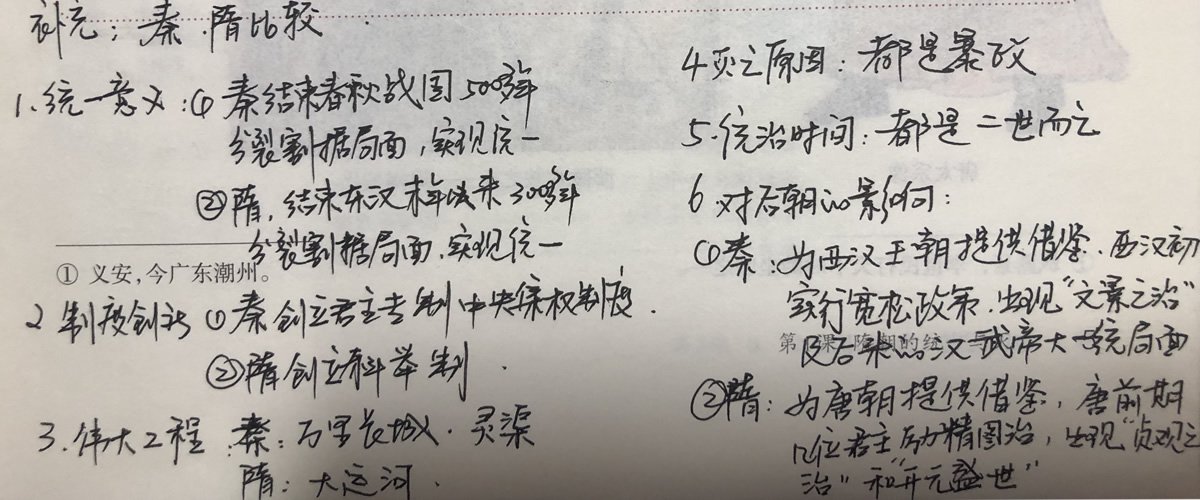 补充：秦.隋比较
1.统一意义：① 秦结束春秋战国500多年
分裂割据局面，实现统一
②隋，结束东汉末年以来300多年
分裂割据局面，实现统一
① 义安，今广东潮州。
2 制度创新 ①秦创立君主专制中央集权制度.
②隋创立科举制.
3.伟大工程 秦：万里长城.灵渠
隋：大运河.
4 灭亡原因：都是暴政
5.统治时间：都是二世而亡
6 对后朝的影响：
①秦：为西汉王朝提供借鉴.西汉初
实行宽松政策.出现“文景之治”
及后来的汉武帝大一统局面
②隋：为唐朝提供借鉴，唐前期
几位君主励精图治，出现“贞观之
治”和“开元盛世”